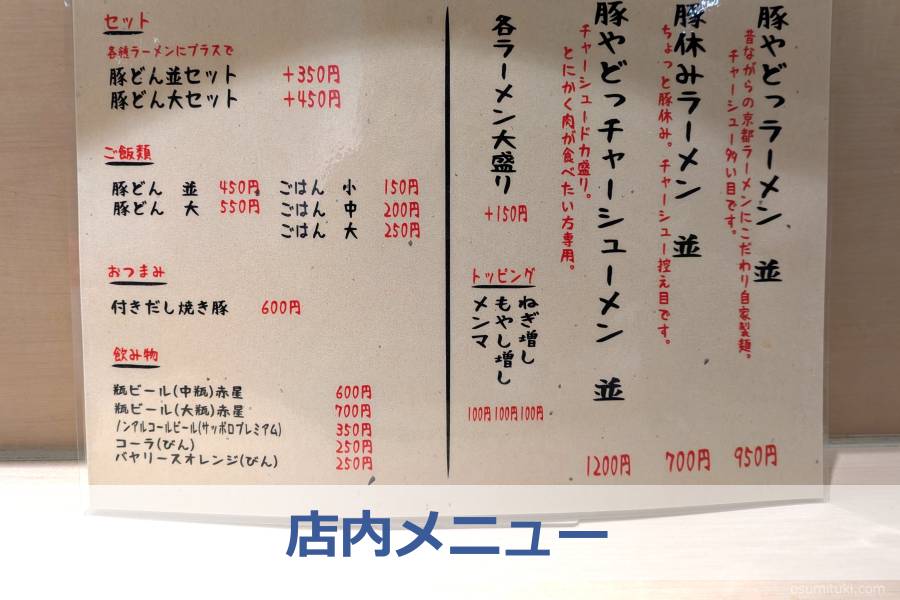 豚やどっラーメン 並
昔ながらの京都ラーメンにこだわり自家製麺。
チャーシュー多い目です。
950円
豚休みラーメン 並
ちょっと豚休み。チャーシュー控え目です。
700円
豚やどっチャーシューメン 並
チャーシュードカ盛り。
とにかく肉が食べたい方専用。
1200円
各ラーメン大盛り
+150円
トッピング
ねぎ増し
もやし増し
メンマ
100円 100円 100円
セット
各種ラーメンにプラスで
豚どん並セット +350円
豚どん大セット +450円
ご飯類
豚どん 並 450円 ごはん 小 150円
豚どん 大 550円 ごはん 中 200円
ごはん 大 250円
おつまみ
付きだし焼き豚 600円
飲み物
瓶ビール(中瓶)赤星 600円
瓶ビール(大瓶)赤星 700円
ノンアルコールビール(サッポロプレミアム) 350円
コーラ(びん) 250円
バヤリースオレンジ(びん) 250円
店内メニュー
osumituki.com